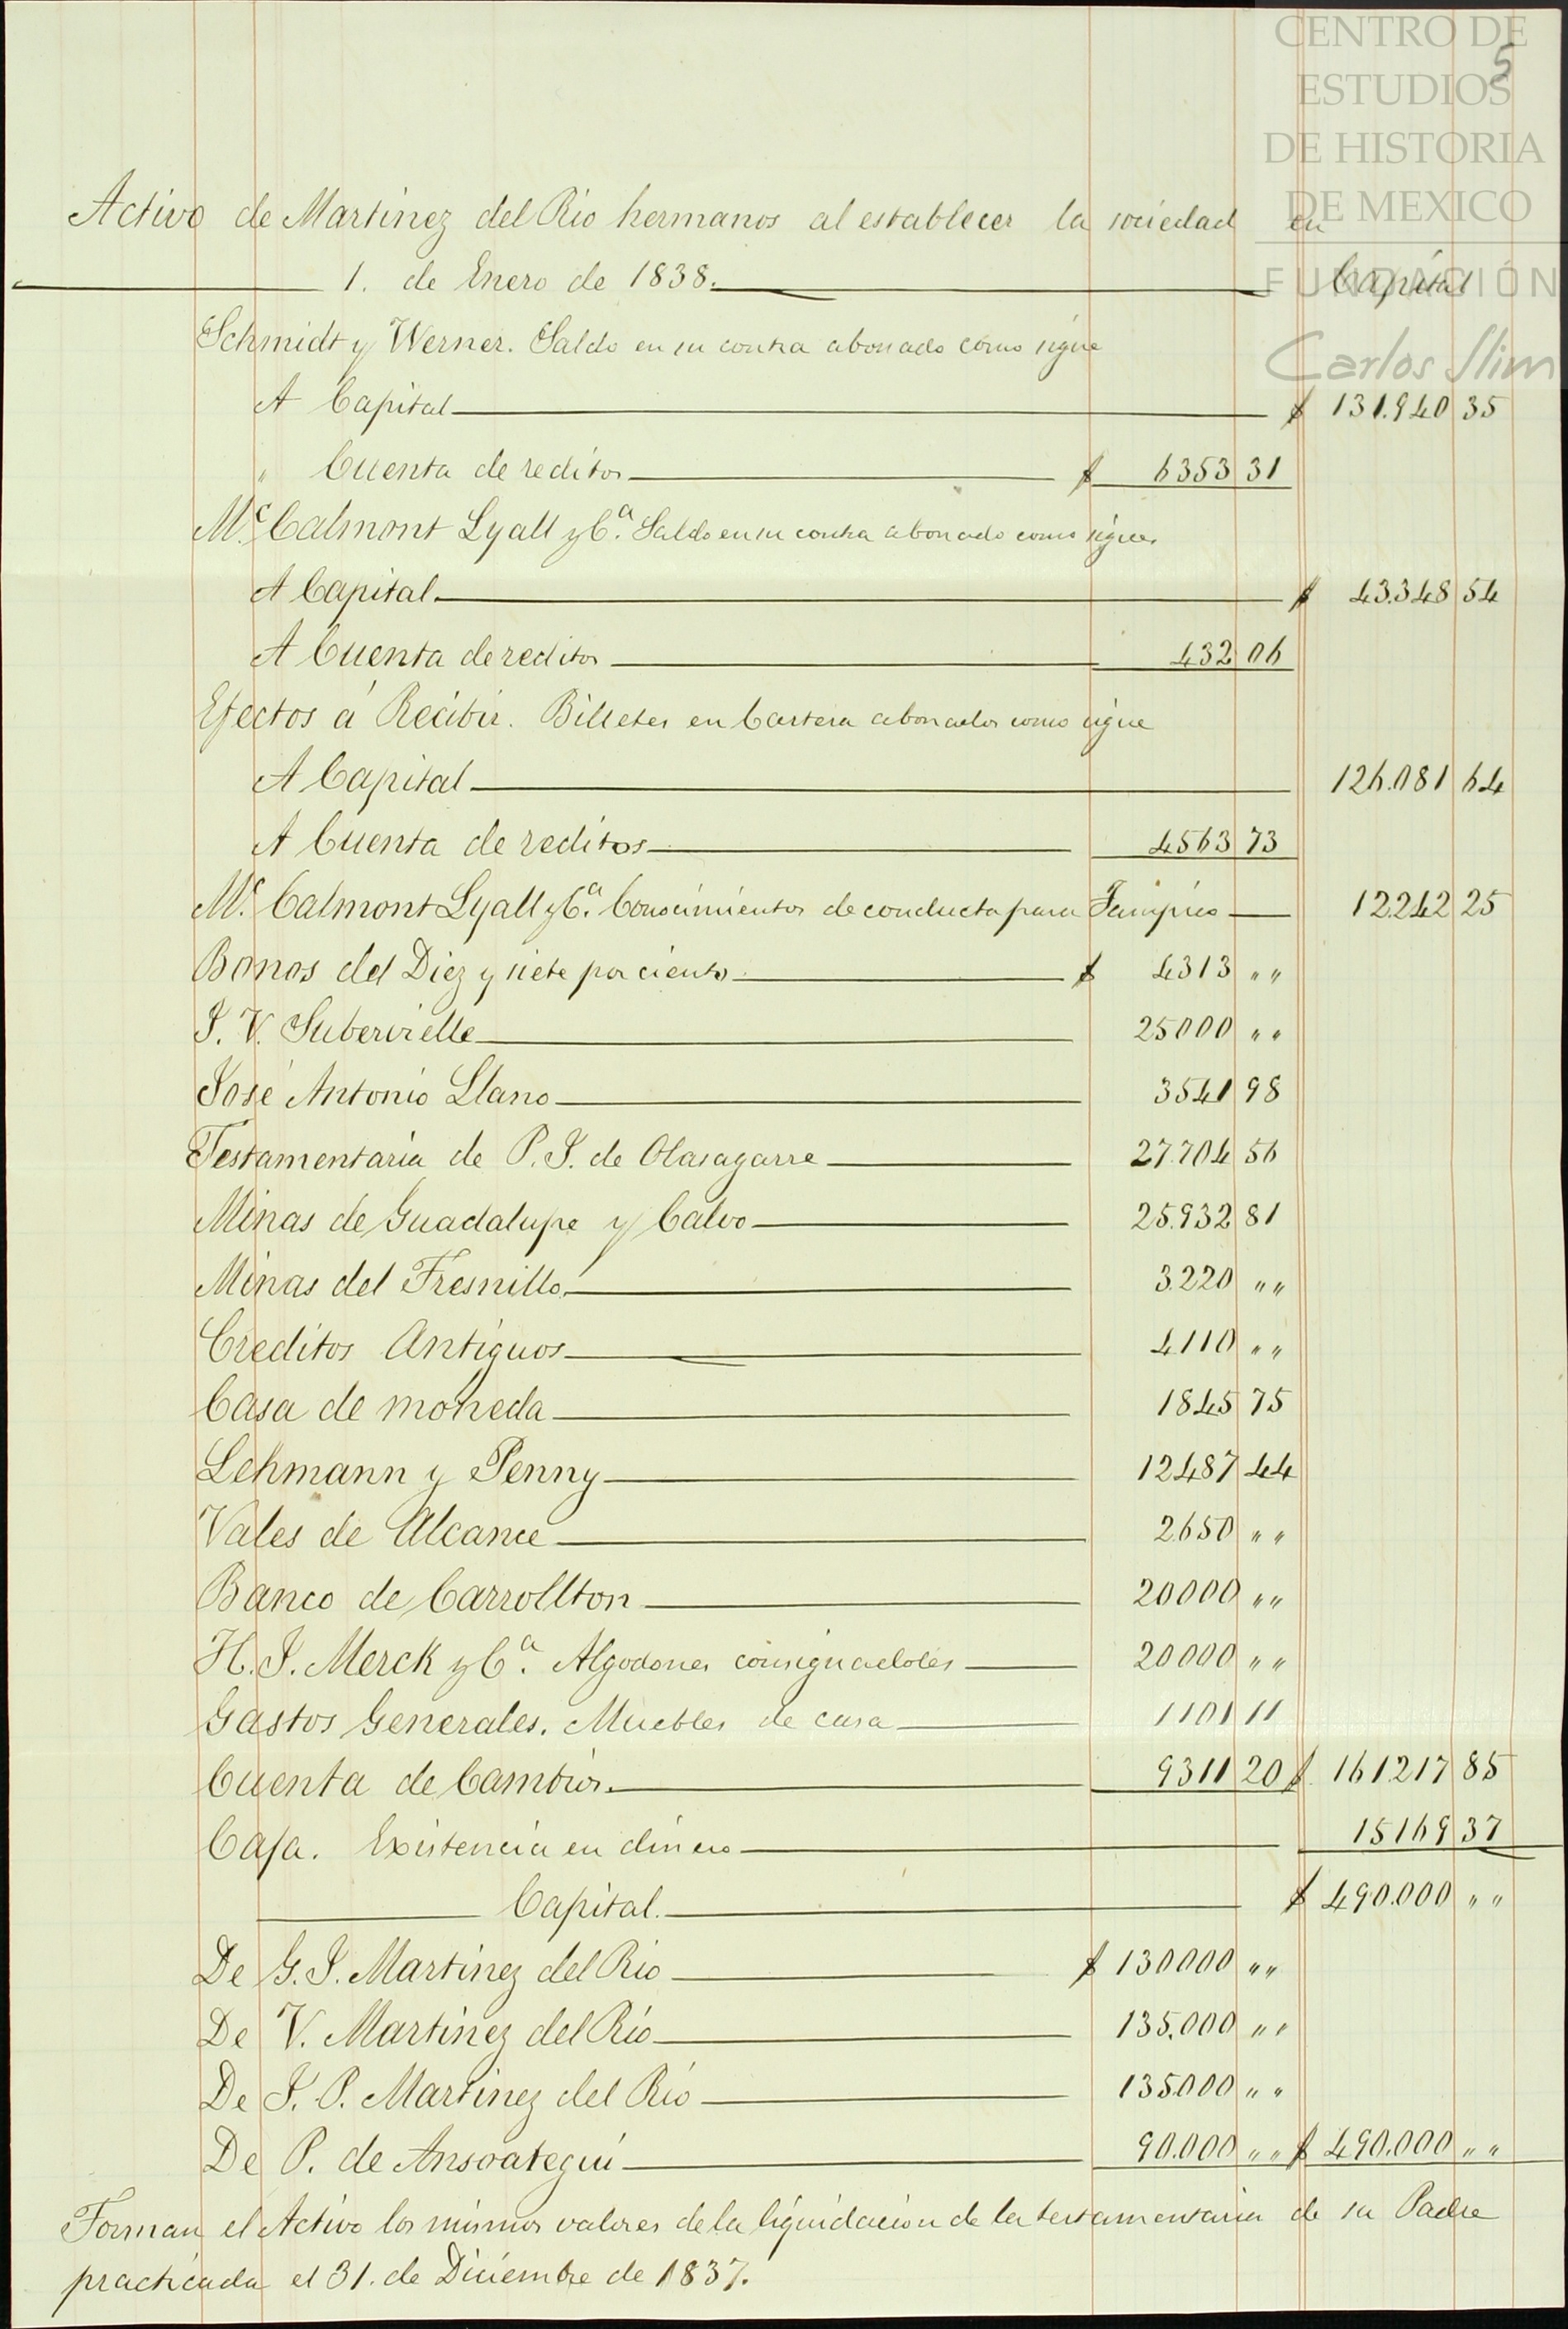 CENTRO DE
ESTUDIOS
DE HISTORIA
DE MEXICO
FUNDACIÓN
Carlos Slim
5
Activo de Martinez del Rio hermanos al establecer la sociedad en
1. de Enero de 1838. Capital
Schmidt y Werner. Saldo en su contra abonado como sigue
A Capital $ 131.940 35
" Cuenta de reditos $ 6353 31
Mc. Calmont Lyall y Ca. Saldo en su contra abonado como sigue.
A Capital. $ 43.348 54
A Cuenta de reditos 432 06
Efectos á Recibir. Billetes en Cartera abonados como sigue
A Capital 126.081 64
A Cuenta de reditos 4563 73
Mc. Calmont Lyall y Ca. Conocimientos de conducta para Tampico 12.242 25
Bonos del Diez y siete por ciento $ 4313 " "
J. V. Subervielle 25000 " "
José Antonio Llano 3541 98
Testamentaria de P. J. de Olasagarre 27.704 56
Minas de Guadalupe y Calvo 25.932 81
Minas del Fresnillo. 3.220 " "
Creditos Antiguos 4110 " "
Casa de moneda 1845 75
Lehmann y Penny 12487 44
Vales de Alcance 2650 " "
Banco de Carrollton 20000 " "
H. J. Merck y Ca. Algodones consignadoles 20000 " "
Gastos Generales. Muebles de casa 1101 11
Cuenta de Cambios. 9311 20 $ 161.217 85
Caja. Existencia en dinero 15169 37
Capital. $ 490.000 " "
De G. J. Martinez del Rio $ 130000 " "
De V. Martinez del Rio 135.000 " "
De J. P. Martinez del Rio 135000 " "
De P. de Ansoategui 90.000 " " $ 490.000 " "
Forman el Activo los mismos valores de la liquidacion de la testamentaria de su Padre
practicada el 31. de Diciembre de 1837.